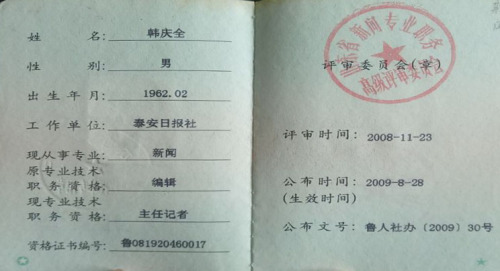 姓 名: 韩庆全
性 别: 男
出生年月: 1962.02
工作单位: 泰安日报社
现从事专业: 新闻
原专业技术
职务资格: 编辑
现专业技术
职务资格: 主任记者
资格证书编号: 鲁081920460017
山东省新闻专业职务
高级评审委员会
评审委员会(章)
评审时间: 2008-11-23
公布时间: 2009-8-28
(生效时间)
公布文号: 鲁人社办〔2009〕30号